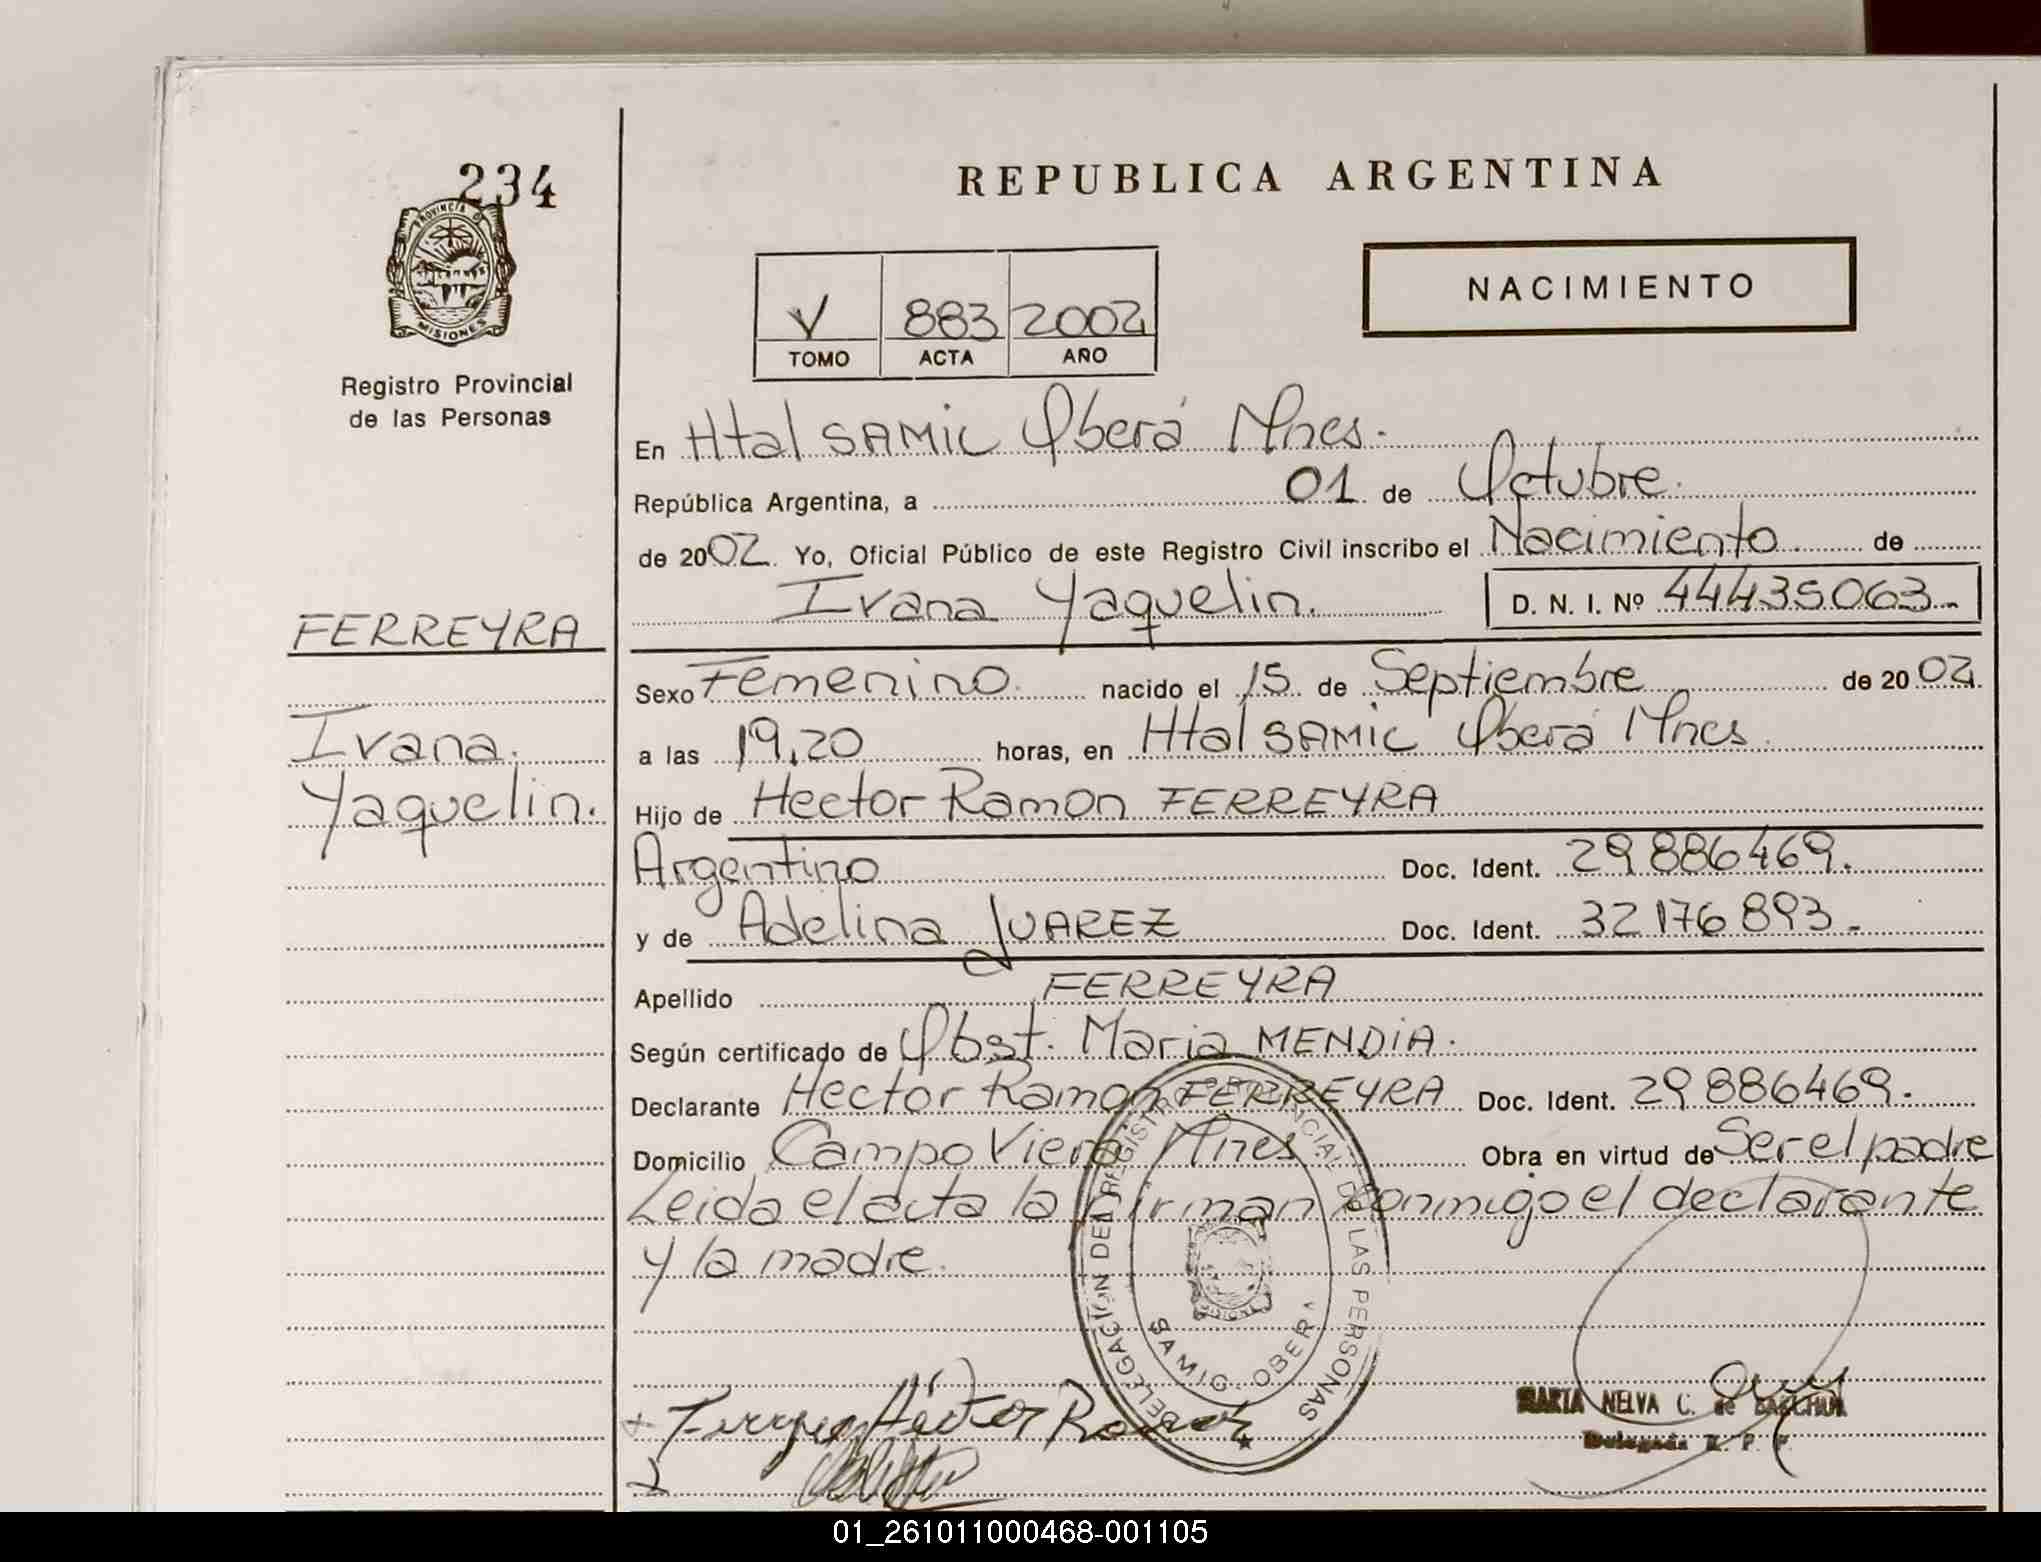 234
PROVINCIA DE
MISIONES
Registro Provincial
de las Personas
FERREYRA
Ivana
Yaquelin.
REPUBLICA ARGENTINA
V 883 2002
TOMO ACTA AÑO
NACIMIENTO
En Htal SAMIC Oberá Mnes.
República Argentina, a 01 de Octubre.
de 2002. Yo, Oficial Público de este Registro Civil inscribo el Nacimiento de
Ivana Yaquelin. D. N. I. Nº 44435063.-
Sexo Femenino. nacido el 15 de Septiembre de 2002.
a las 19,20 horas, en Htal SAMIC Oberá Mnes.
Hijo de Hector Ramon FERREYRA
Argentino Doc. Ident. 29886469.
y de Adelina JUAREZ Doc. Ident. 32176893.-
Apellido FERREYRA
Según certificado de Obst. Maria MENDIA.
Declarante Hector Ramon FERREYRA Doc. Ident. 29886469.
Domicilio Campo Viera Mnes Obra en virtud de Ser el padre
Leida el acta la firman conmigo el declarante
y la madre.
DELEGACION DEL REGISTRO PROVINCIAL DE LAS PERSONAS
SAMIC - OBERA
Hector Ramon
MARIA NELVA C. de
Delegada R. P. P.
01_261011000468-001105